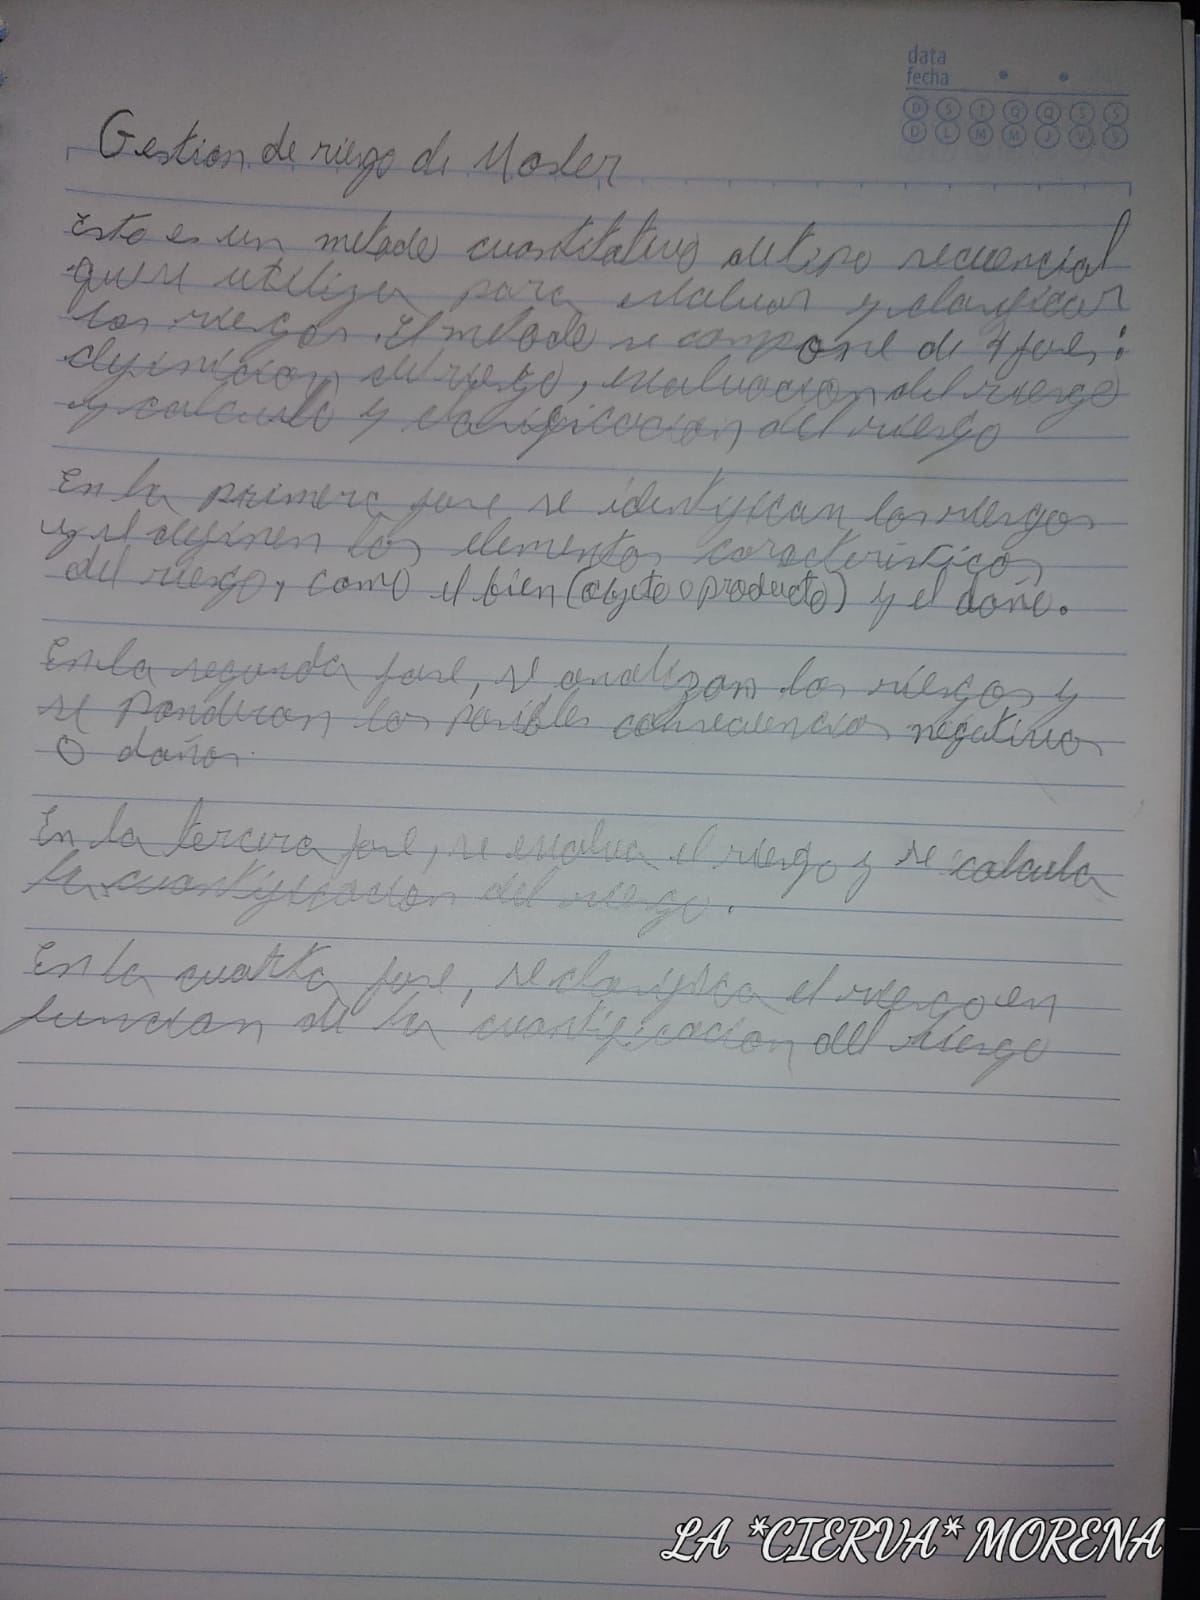 data
fecha
D S T Q Q S S
D L M M J V S
Gestion de riesgo de Mosler
Esto es un metodo cuantitativo de tipo secuencial
que se utiliza para evaluar y clasificar
los riesgos. El metodo se compone de 4 fases:
definicion del riesgo, evaluacion del riesgo
y calculo y clasificacion del riesgo
En la primera fase se identifican los riesgos
y se definen los elementos caracteristicos
del riesgo, como el bien (objeto o producto) y el daño.
En la segunda fase, se analizan los riesgos y
se ponderan las posibles consecuencias negativas
o daños.
En la tercera fase, se evalua el riesgo y se calcula
la cuantificacion del riesgo.
En la cuarta fase, se clasifica el riesgo en
funcion de la cuantificacion del riesgo
LA *CIERVA* MORENA